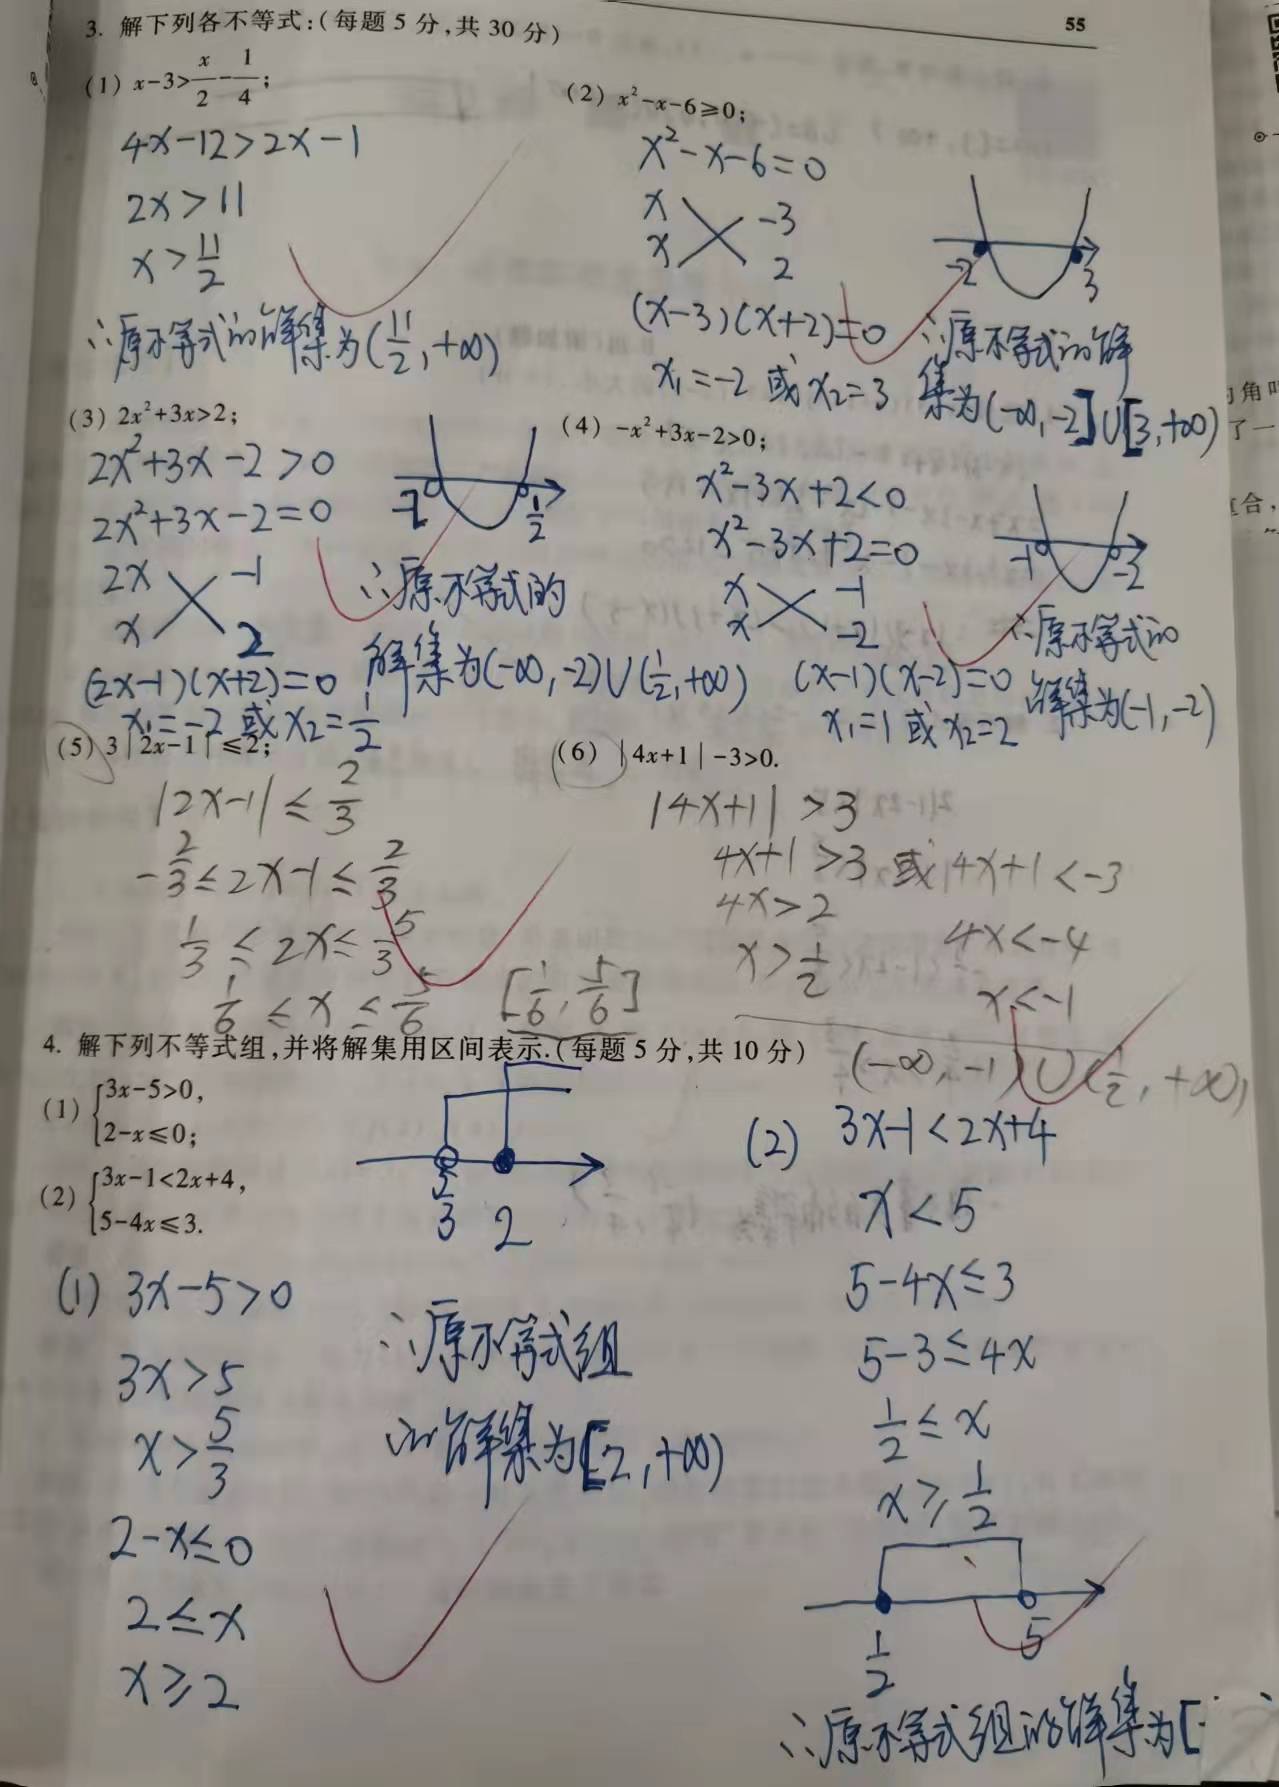 55
3. 解下列各不等式:(每题 5 分,共 30 分)
(1) x-3>x/2-1/4;
4x-12>2x-1
2x>11
x>11/2
∴原不等式的解集为(11/2,+∞)
(2) x²-x-6≥0;
x²-x-6=0
x -3
x 2
(x-3)(x+2)=0
x₁=-2 或 x₂=3
-2 3
∴原不等式的解
集为(-∞,-2]∪[3,+∞)
(3) 2x²+3x>2;
2x²+3x-2>0
2x²+3x-2=0
2x -1
x 2
(2x-1)(x+2)=0
x₁=-2 或 x₂=1/2
-2 1/2
∴原不等式的
解集为(-∞,-2)∪(1/2,+∞)
(4) -x²+3x-2>0;
x²-3x+2<0
x²-3x+2=0
x -1
x -2
(x-1)(x-2)=0
x₁=1 或 x₂=2
-1 -2
∴原不等式的
解集为(-1,-2)
(5) 3|2x-1|≤2;
|2x-1|≤2/3
-2/3≤2x-1≤2/3
1/3≤2x≤5/3
1/6≤x≤5/6
[1/6,5/6]
(6) |4x+1|-3>0.
|4x+1|>3
4x+1>3 或 4x+1<-3
4x>2
x>1/2
4x<-4
x<-1
(-∞,-1)∪(1/2,+∞)
4. 解下列不等式组,并将解集用区间表示.(每题 5 分,共 10 分)
(1) {3x-5>0,
2-x≤0;
(2) {3x-1<2x+4,
5-4x≤3.
5/3 2
(1) 3x-5>0
3x>5
x>5/3
2-x≤0
2≤x
x≥2
∴原不等式组
的解集为[2,+∞)
(2) 3x-1<2x+4
x<5
5-4x≤3
5-3≤4x
1/2≤x
x≥1/2
1/2 5
∴原不等式组的解集为[
角
了一
合,